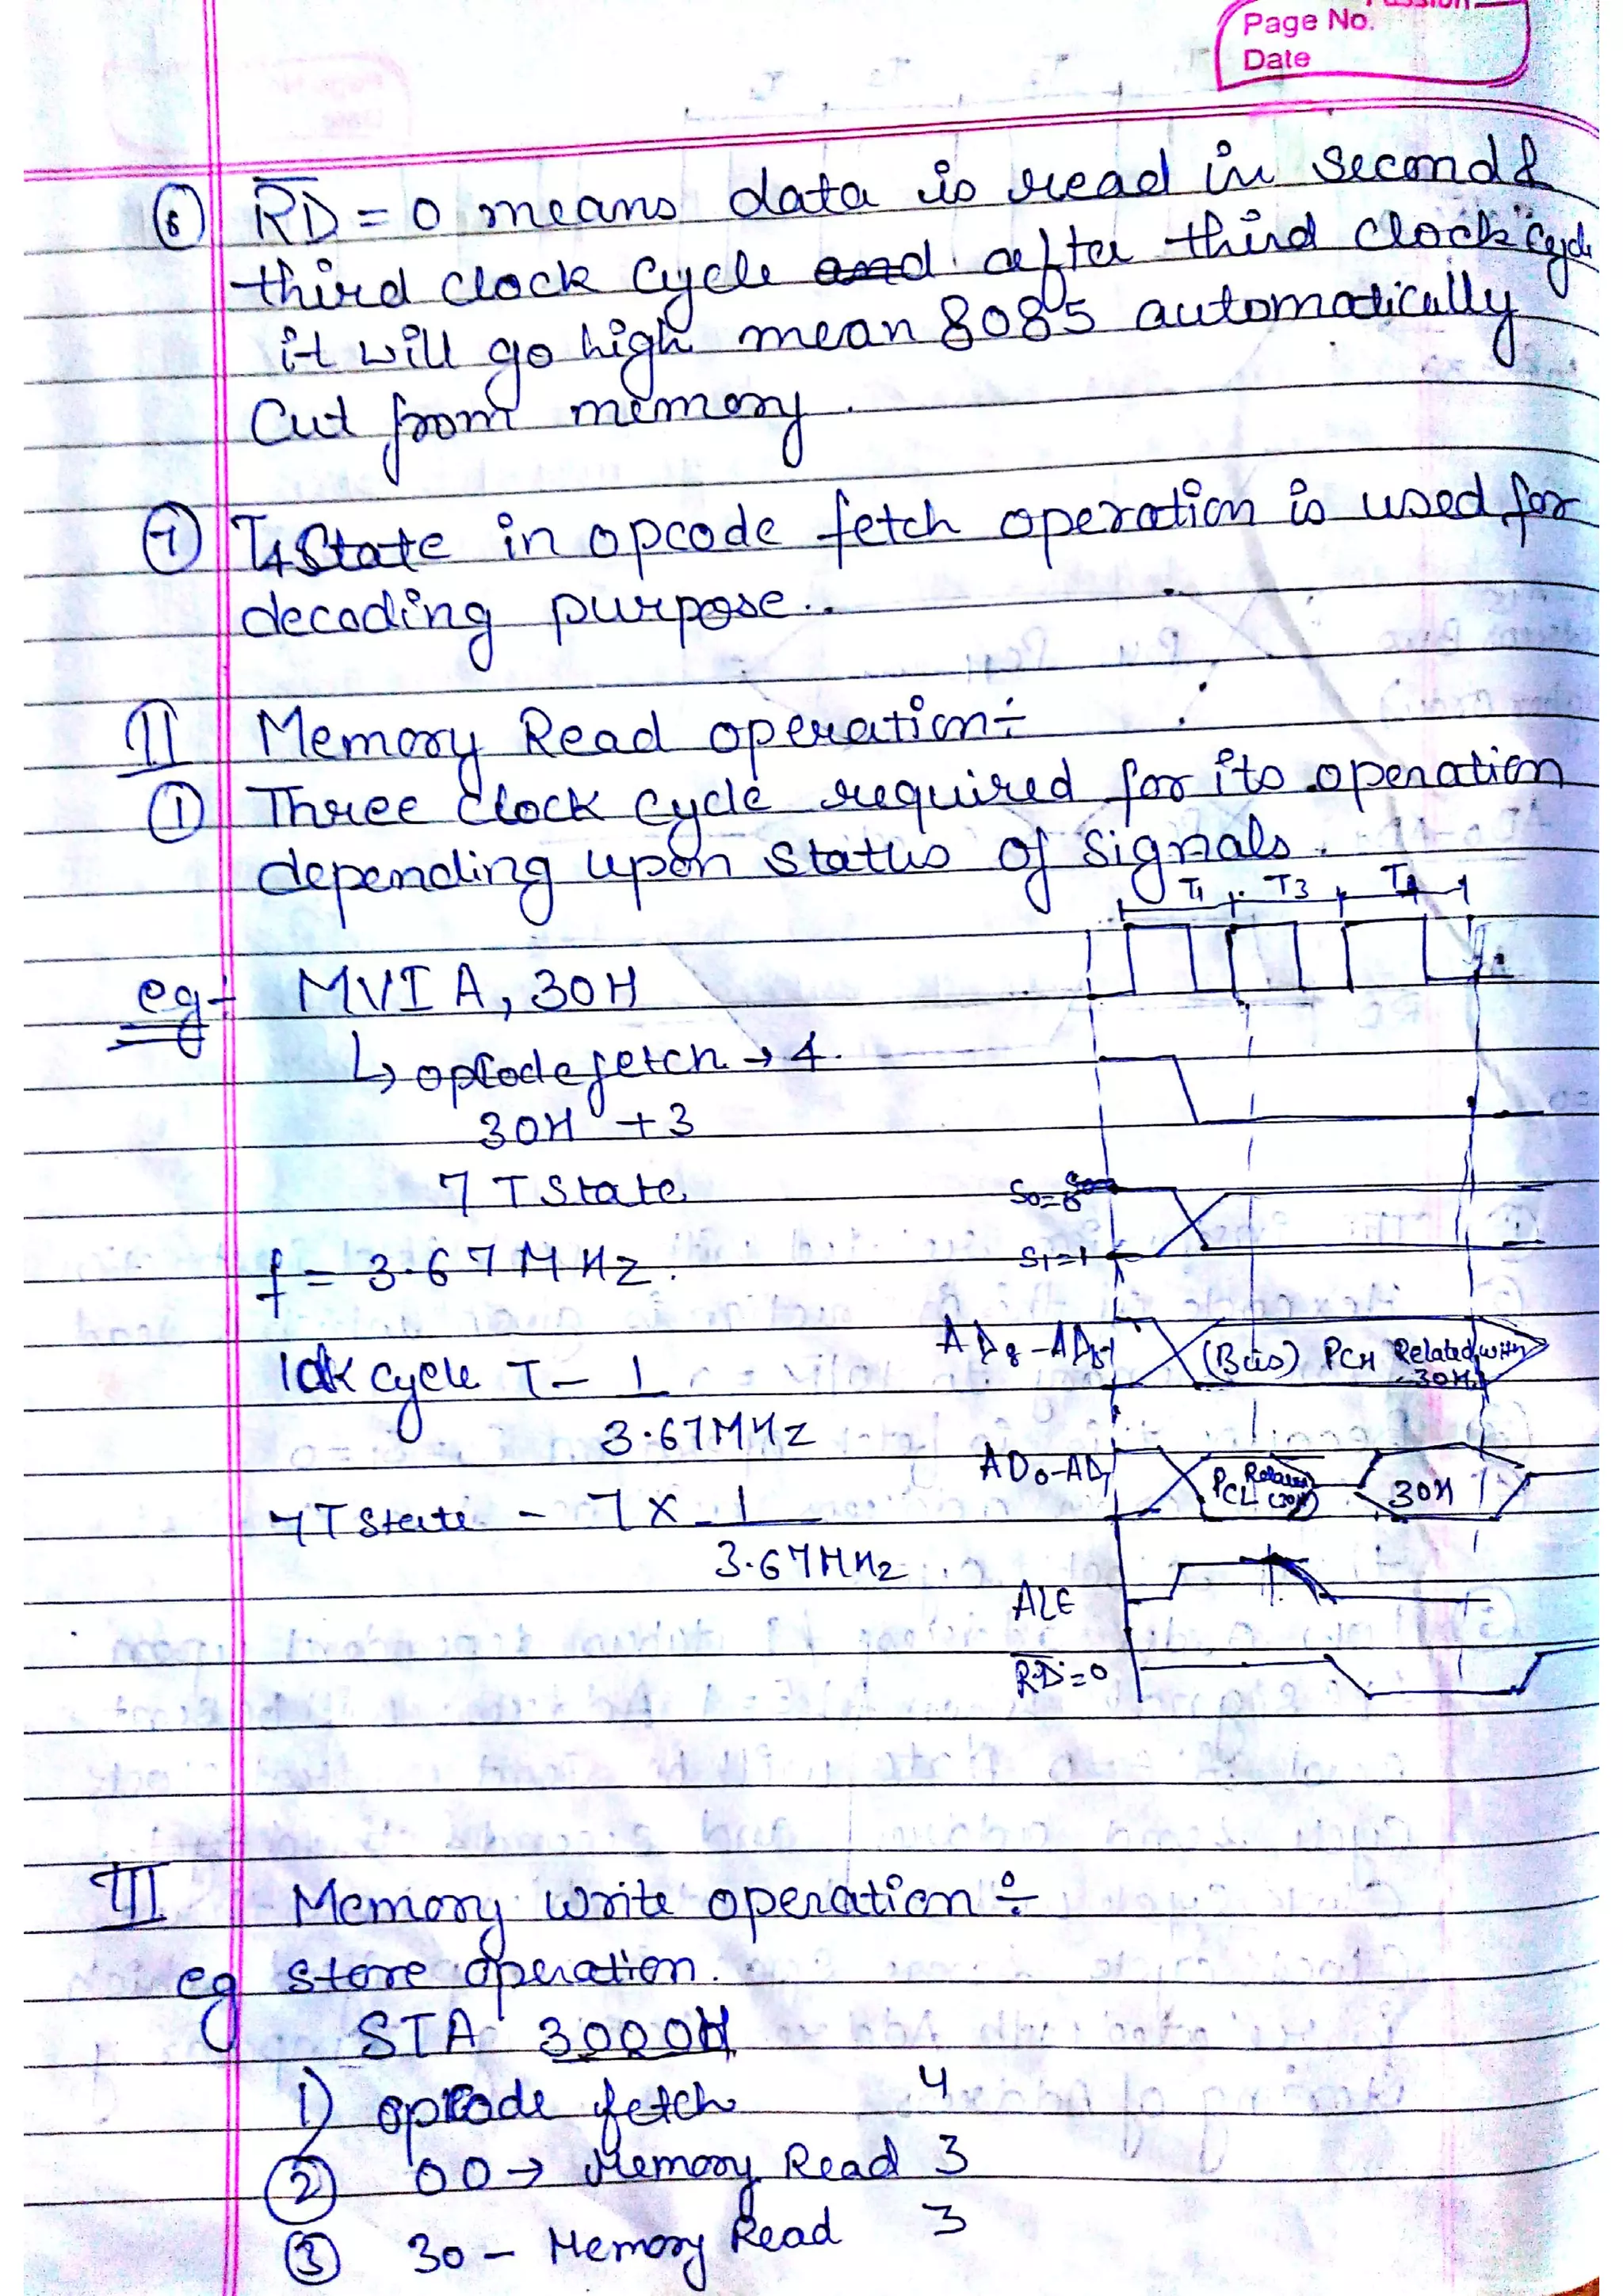 Page No.
Date
⑥ R̅D̅ = 0 means data is read in second &
third clock cycle and after third clock cycle
it will go high mean 8085 automatically
Cut from memory.
⑦ T4 State in opcode fetch operation is used for
decoding purpose..
II Memory Read operation÷
① Three clock cycle required for its operation
depending upon status of signals.
T1 T3
eg- MVI A, 30H
↳ opcode fetch → 4.
30H +3
7 T State
S1=1
f = 3.67 MHz.
(Bus) PCH Related with
30H
1 clk cycle T - 1
3.67MHz
AD0-AD7
PCL 30H
7 T State - 7 × 1
3.67MHz
ALE
R̅D̅=0
III Memory write operation÷
eg store operation.
STA 3000H
1) opcode fetch 4
② 00 → Memory Read 3
③ 30 - Memory Read 3